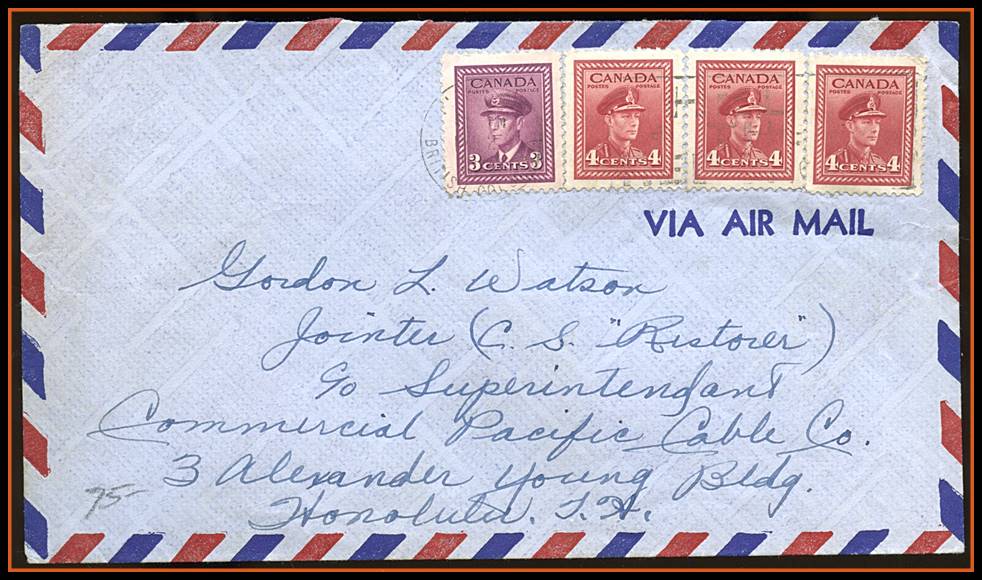 CANADA CANADA CANADA CANADA
POSTES POSTAGE POSTES POSTAGE POSTES POSTAGE POSTES POSTAGE
3 CENTS 3 4 CENTS 4 4 CENTS 4 4 CENTS 4
VIA AIR MAIL
Gordon L. Watson
Jointer (C. S. "Restorer")
c/o Superintendant
Commercial Pacific Cable Co.
3 Alexander Young Bldg.
Honolulu. T.H.
75-